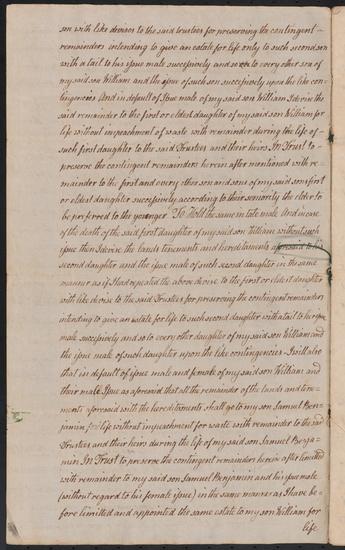 son with like devises to the said trustees for preserving the contingent
remainders intending to give an estate for life only to such second son
with a tail to his issue male successively and so on to every other son of
my said son William and the issue of such son successively upon the like con-
tingencies And in default of Issue male of my said son William I devise the
said remainder to the first or eldest daughter of my said son William for
life without impeachment of waste with remainder during the life of
such first daughter to the said Trustees and their heirs In Trust to
preserve the contingent remainders herein after mentioned with re-
mainder to the first and every other son and sons of my said sons first
or eldest daughter successively according to their seniority the elder to
be preferred to the younger To Hold the same in tale male And in case
of the death of the said first daughter of my said son William without such
issue then I devise the lands tenements and hereditaments aforesaid to his
second daughter and the issue male of such second daughter in the same
manner as if I had repeated the above devise to the first or eldest daughter
with like devise to the said Trustees for preserving the contingent remainders
intending to give an estate for life to such second daughter with a tail to her issue
male successively and so to every other daughter of my said son William and
the issue male of such daughter upon the like contingencies I will also
that in default of issue male and female of my said son William and
their male Issue as aforesaid that all the remainder of the lands and tene-
ments aforesaid with the hereditaments shall go to my son Samuel Ben-
jamin for life without impeachment for waste with remainder to the said
Trustees and their heirs during the life of my said son Samuel Benja-
min In Trust to preserve the contingent remainders herein after limitted
with remainder to my said son Samuel Benjamin and his issue male
(without regard to his female issue) in the same manner as I have be-
fore limitted and appointed the same estate to my son William for
life